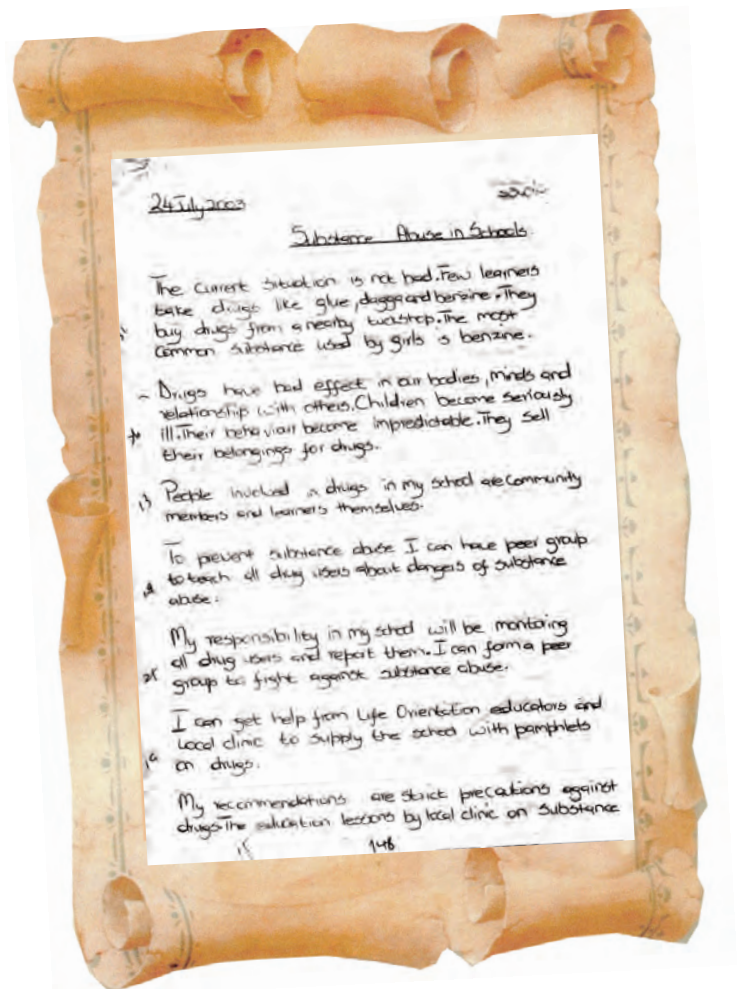 24 July 2003
Substance Abuse in Schools
The current situation is not bad. Few learners
take drugs like glue, dagga and benzine. They
buy drugs from a nearby tuckshop. The most
common substance used by girls is benzine.
Drugs have bad effect in our bodies, minds and
relationship with others. Children become seriously
ill. Their behaviour become impredictable. They sell
their belongings for drugs.
People involved in drugs in my school are community
members and learners themselves.
To prevent substance abuse I can have peer group
to teach all drug users about dangers of substance
abuse.
My responsibility in my school will be monitoring
all drug users and report them. I can form a peer
group to fright against substance abuse.
I can get help from Life Orientation educators and
Local clinic to supply the school with pamphlets
on drugs.
My recommendations are strict precautions against
drugs. The education lessons by local clinic on substance
148